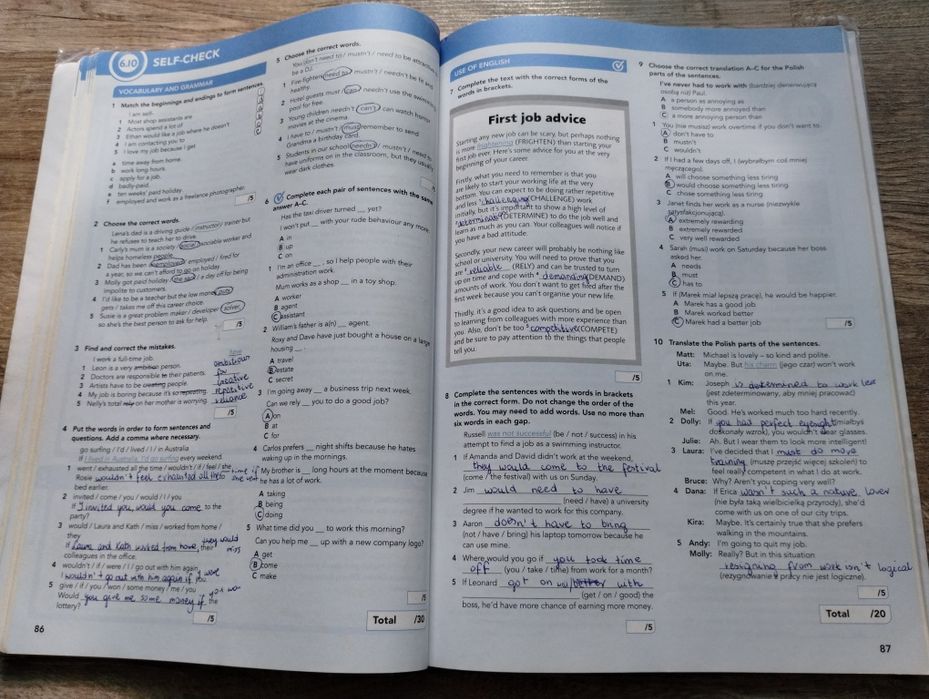 6.10 SELF-CHECK
VOCABULARY AND GRAMMAR
1 Match the beginnings and endings to form sentences.
I am self-
1 Most shop assistants are
2 Actors spend a lot of
3 Ethan would like a job where he doesn't
4 I am contacting you to
5 I love my job because I get
a time away from home.
b work long hours.
c apply for a job.
d badly-paid.
e ten weeks' paid holiday.
f employed and work as a freelance photographer.
/5
2 Choose the correct words.
Lena's dad is a driving guide / instructor / trainer but
he refuses to teach her to drive.
1 Carly's mum is a society / social / sociable worker and
helps homeless people.
2 Dad has been unemployed / employed / fired for
a year, so we can't afford to go on holiday
3 Molly got paid holiday / the sack / a day off for being
impolite to customers.
4 I'd like to be a teacher but the low money / pay /
gets / takes me off this career choice.
5 Susie is a great problem maker / developer / solver,
so she's the best person to ask for help.
/5
3 Find and correct the mistakes.
I work a full-time job. have
1 Leon is a very ambition person. ambitious
2 Doctors are responsible to their patients. for
3 Artists have to be creating people. creative
4 My job is boring because it's so repeating. repetitive
5 Nelly's total rely on her mother is worrying. reliance
/5
4 Put the words in order to form sentences and
questions. Add a comma where necessary.
go surfing / I'd / lived / I / in Australia
If I lived in Australia, I'd go surfing every weekend.
1 went / exhausted all the time / wouldn't / if / feel / she
Rosie wouldn't feel exhausted all the time if she went
bed earlier.
2 invited / come / you / would / I / you
If I invited you, would you come to the
party?
3 would / Laura and Kath / miss / worked from home /
they
If Laura and Kath worked from home, they would miss their
colleagues in the office.
4 wouldn't / if / were / I / go out with him again
I wouldn't go out with him again if I were you.
5 give / if / you / won / some money / me / you
Would you give me some money if you won the
lottery?
/5
5 Choose the correct words.
You don't need to / mustn't / need to be attractive
be a DJ.
1 Fire fighters need to / mustn't / needn't be fit and
healthy.
2 Hotel guests must / can / needn't use the swimming
pool for free.
3 Young children needn't / can't / can watch horror
movies at the cinema.
4 I have to / mustn't / must remember to send
Grandma a birthday card.
5 Students in our school needn't / mustn't / need to
have uniforms on in the classroom, but they usually
wear dark clothes.
6 Complete each pair of sentences with the same
answer A–C.
Has the taxi driver turned __ yet?
I won't put __ with your rude behaviour any more.
A in
B up
C on
1 I'm an office __, so I help people with their
administration work.
Mum works as a shop __ in a toy shop.
A worker
B agent
C assistant
2 William's father is a(n) __ agent.
Roxy and Dave have just bought a house on a large
housing __.
A travel
B estate
C secret
3 I'm going away __ a business trip next week.
Can we rely __ you to do a good job?
A on
B at
C for
4 Carlos prefers __ night shifts because he hates
waking up in the mornings.
My brother is __ long hours at the moment because
he has a lot of work.
A taking
B being
C doing
5 What time did you __ to work this morning?
Can you help me __ up with a new company logo?
A get
B come
C make
/5
Total /30
86
USE OF ENGLISH
7 Complete the text with the correct forms of the
words in brackets.
First job advice
Starting any new job can be scary, but perhaps nothing
is more frightening (FRIGHTEN) than starting your
first job ever. Here's some advice for you at the very
beginning of your career.
Firstly, what you need to remember is that you
are likely to start your working life at the very
bottom. You can expect to be doing rather repetitive
and less ¹challenging (CHALLENGE) work
initially, but it's important to show a high level of
²determination (DETERMINE) to do the job well and
learn as much as you can. Your colleagues will notice if
you have a bad attitude.
Secondly, your new career will probably be nothing like
school or university. You will need to prove that you
are ³reliable (RELY) and can be trusted to turn
up on time and cope with ⁴demanding (DEMAND)
amounts of work. You don't want to get fired after the
first week because you can't organise your new life.
Thirdly, it's a good idea to ask questions and be open
to learning from colleagues with more experience than
you. Also, don't be too ⁵competitive (COMPETE)
and be sure to pay attention to the things that people
tell you.
/5
8 Complete the sentences with the words in brackets
in the correct form. Do not change the order of the
words. You may need to add words. Use no more than
six words in each gap.
Russell was not successful (be / not / success) in his
attempt to find a job as a swimming instructor.
1 If Amanda and David didn't work at the weekend,
they would come to the festival
(come / the festival) with us on Sunday.
2 Jim would need to have
(need / have) a university
degree if he wanted to work for this company.
3 Aaron doesn't have to bring
(not / have / bring) his laptop tomorrow because he
can use mine.
4 Where would you go if you took time
off (you / take / time) from work for a month?
5 If Leonard got on better with
(get / on / good) the
boss, he'd have more chance of earning more money.
/5
9 Choose the correct translation A–C for the Polish
parts of the sentences.
I've never had to work with (bardziej denerwującą
osobą niż) Paul.
A a person as annoying as
B somebody more annoyed than
C a more annoying person than
1 You (nie musisz) work overtime if you don't want to.
A don't have to
B mustn't
C wouldn't
2 If I had a few days off, I (wybrałbym coś mniej
męczącego).
A will choose something less tiring
B would choose something less tiring
C chose something less tiring
3 Janet finds her work as a nurse (niezwykle
satysfakcjonującą).
A extremely rewarding
B extremely rewarded
C very well rewarded
4 Sarah (musi) work on Saturday because her boss
asked her.
A needs
B must
C has to
5 If (Marek miał lepszą pracę), he would be happier.
A Marek has a good job
B Marek worked better
C Marek had a better job
/5
10 Translate the Polish parts of the sentences.
Matt: Michael is lovely – so kind and polite.
Uta: Maybe. But his charm (jego czar) won't work
on me.
1 Kim: Joseph is determined to work less
(jest zdeterminowany, aby mniej pracować)
this year.
Mel: Good. He's worked much too hard recently.
2 Dolly: If you had perfect eyesight (miałbyś
doskonały wzrok), you wouldn't wear glasses.
Julie: Ah. But I wear them to look more intelligent!
3 Laura: I've decided that I must do more
training (muszę przejść więcej szkoleń) to
feel really competent in what I do at work.
Bruce: Why? Aren't you coping very well?
4 Dana: If Erica wasn't such a nature lover
(nie była taką wielbicielką przyrody), she'd
come with us on one of our city trips.
Kira: Maybe. It's certainly true that she prefers
walking in the mountains.
5 Andy: I'm going to quit my job.
Molly: Really? But in this situation
resigning from work isn't logical
(rezygnowanie z pracy nie jest logiczne).
/5
Total /20
87